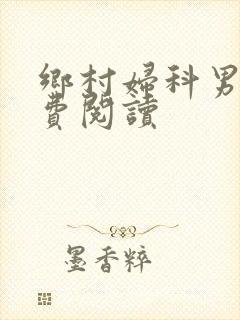 鄉村婦科男
費閱讀
墨香粹